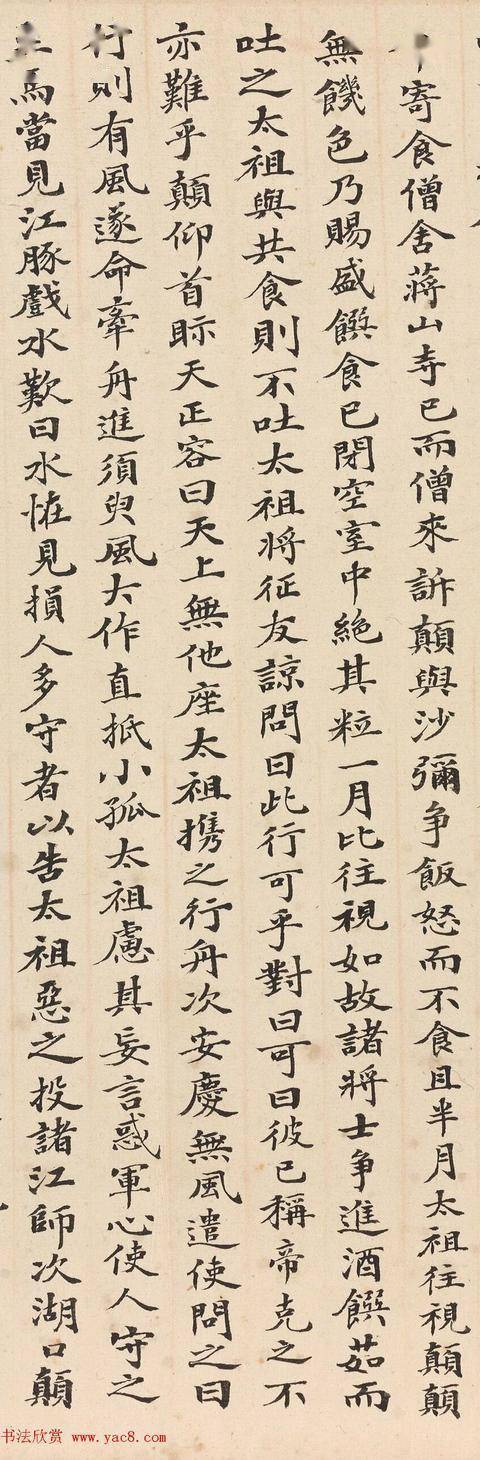 寄食僧舍蔣山寺已而僧來訴顛與沙彌争飯怒而不食且半月太祖往視顛顛
無饑色乃賜盛饌食已閉空室中絶其粒一月比往視如故諸將士争進酒饌茹而
吐之太祖與共食則不吐太祖将征友諒問曰此行可乎對曰可曰彼已稱帝克之不
亦難乎顛仰首眎天正容曰天上無他座太祖携之行舟次安慶無風遣使問之曰
行則有風遂命牽舟進須臾風大作直抵小孤太祖慮其妄言惑軍心使人守之
至馬當見江豚戲水歎曰水怪見損人多守者以告太祖惡之投諸江師次湖口顛
书法欣赏 www.yac8.com